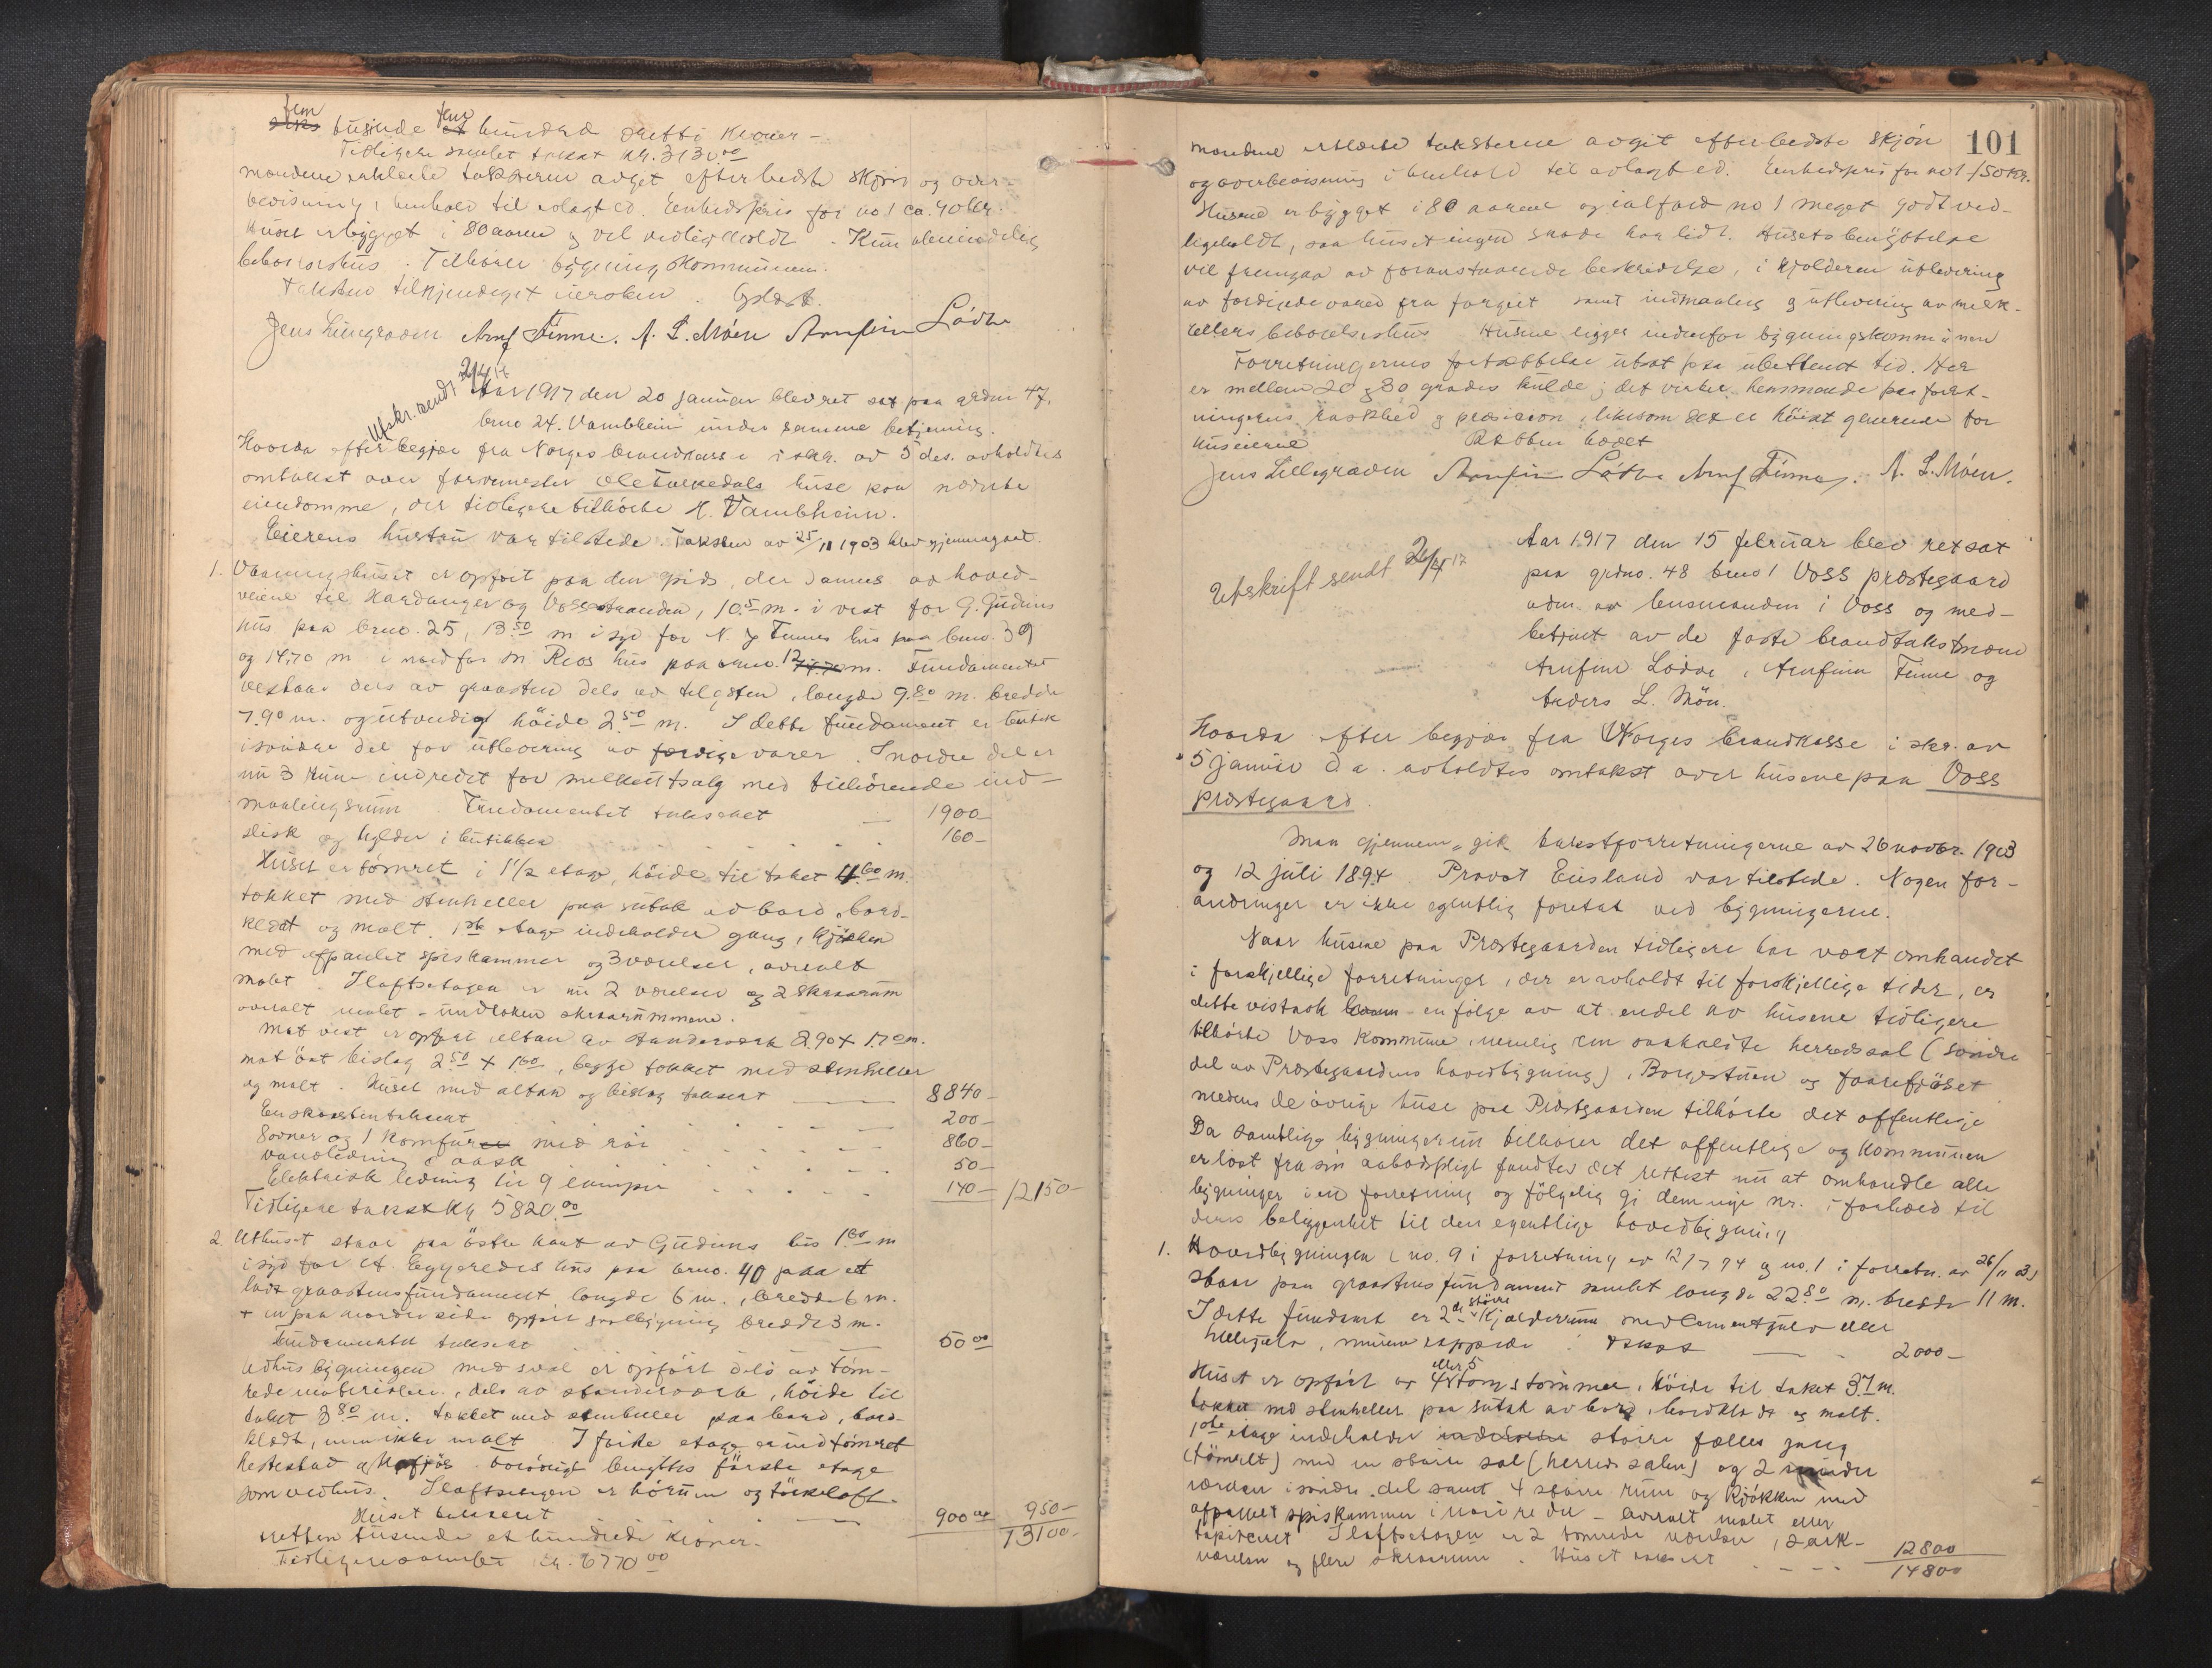 fem fem
seks tusinde et hundred tretti kroner –
Tidligere samlet takst kr. 3130.00
mændene erklærte taksterne avgit efter bedste skjön og over-
bevisning i henhold til avlagt ed. Eenhedspris for no 1 ca. 40 kr.
Huset er bygget i 80 aarene og vel vedlikeholdt. Kun almindelig
beboelseshus. Tilhører bygningskommunen.
Taksten tilkjendegit eieren.
Jens Lillegraven Arnf Finne. A. L. Móen Arnfinn Lödve
Utskr. sendt 2/4 17
Aar 1917 den 20 januar blev ret sat paa grdno 47,
brno 24. Vambheim under samme betjening.
Hvorda efter begjær fra Norges brandkasse i skr. av 5 des. avholdtes
omtakst over farvemester Ole Tvekedals huse paa nævnte
eiendomme, der tidligere tilhörte H. Vambheim.
Eierens hustru var tilstede. Taksten av 25/11 1903 blev gjennemgaat.
1. Vaaningshuset er opfört paa den spids, der dannes av hoved-
veiene til Hardanger og Vossestranden, 10.5 m. i vest for G. Gudins
hus paa brno. 25, 13.50 m i syd for N. J. Finnes hus paa brno. 39
og 14,70 m i nord for M. Reos hus paa brno. 12. Fundamentet
bestaar dels av graasten dels av teglsten, længde 9.80 m. bredde
7.90 m. og utvendig höide 2.50 m. I dette fundament er butik
i söndre del for utlevering av færdige varer. I nordre del er
nu 3 rum indredet for melkeutsalg med tilhörende ind-
maalingsrum. Fundamentet taksert — 1900 –
disk og hylder i butikken . . . 160 –
Huset er tömret i 1 1/2 etage, höide til taket 4.60 m.
tækket med stenheller paa sutak av bord, bord-
klædt og malt. 1ste etage indeholder gang, kjökken
med afpanlet spiskammer og 3 værelser, overalt
malet. I loftsetagen er nu 2 værelser og 2 skraarum
overalt malet – undtaken skraarummene.
Mot vest er opfört altan av standerværk 2.90 x 1.70 m.
mot öst bislag 2.50 x 1.60, begge tækket med stenheller
og malt. Huset med altan og bislag taksert — 8840 –
En skorsten taksert . . . 200 –
3 ovner og 1 komfur med rör . . . 860 –
Vandledning & vask . . . 50 –
Elektrisk ledning til 9 lamper . . . 140 – 12150 –
Tidligere takst kr 5820.00
2. Uthuset staar paa östre kant av Gudins hus 1.60 m
i syd for A. Eggereides hus paa brno. 40 paa et
lavt graastensfundament længde 6 m., bredde 6 m.
+ en paa nordre side opfört svalbygning bredde 3 m.
Fundamentet taksert — 50 00
Uthusbygningen med sval er opfört dels av töm-
rede materialer, dels av standerværk, höide til
taket 3.80 m. tækket med stenheller paa bord, bord-
klædt, men ikke malt. I förste etage er indtömret
hestestad og kofjös. Forövrigt benyttes förste etage
som vedhus. I loftsetagen er hörum og törkeloft.
Huset taksert — 900 00 950 –
Tretten tusende et hundrede kroner. – 13100 –
Tidligere samlet kr. 6770 00
101
mændene erklærte taksterne avgit efter bedste skjön
og overbevisning i henhold til avlagt ed. Eenhedspris for no 1 150 kr.
Husene er bygget i 80 aarene og ialfald no 1 meget godt ved-
ligeholdt, saa huset ingen skade har lidt. Husets benyttelse
vil fremgaa av foranstaaende beskrivelse, i kjelderen utlevering
av færdige varer fra farveriet samt indmaaling og utlevering av melk.
ellers beboelseshus. Husene ligger indenfor bygningskommunen
Forretningernes fortsættelse utsat paa ubestemt tid. Her
er mellem 20 og 30 graders kulde; det virker hemmende paa forret-
ningernes raskhed og præcision, likesom det er höist generende for
huseierne Retten hævet
Jens Lillegraven Arnfinn Lödve Arnf Finne. A. L. Móen.
Utskrift sendt 2/4 17
Aar 1917 den 15 februar blev ret sat
paa grdno. 48 brno 1 Voss prestegaard
adm. av lensmanden i Voss og med-
betjent av de faste brandtakstmænd
Arnfinn Lødve, Arnfinn Finne og
Anders L. Mön.
Hvorda efter begjær fra Norges brandkasse i skr. av
5 januar d.a. avholdtes omtakst over husene paa Voss
prestegaard.
Man gjennemgik takstforretningerne av 26 novbr. 1903
og 12 juli 1894. Provst Eiesland var tilstede. Nogen for-
andringer er ikke egentlig foretat ved bygningerne.
Naar husene paa Prestegaarden tidligere har vært omhandlet
i forskjellige forretninger, der er avholdt til forskjellige tider, er
dette vistnok en fölge av at endel av husene tidligere
tilhörte Voss kommune, nemlig den saakaldte herredssal (söndre
del av Prestegaardens hovedbygning), Borgestuen og faarefjöset
medens de övrige huse paa Prestegaarden tilhörte det offentlige
Da samtlige bygninger nu tilhörer det offentlige og kommunen
er löst fra sin aabodspligt fandtes det rettest nu at omhandle alle
bygninger i en forretning og fölgelig gi dem nye nr. i forhold til
deres beliggenhet til den egentlige hovedbygning
1. Hovedbygningen (no. 9 i forretning av 12/7 94 og no. 1 i forretn. av 26/11 03)
staar paa graastens fundament samlet længde 22.80 m. bredde 11 m.
I dette fundamt er 2de större kjælderrum med cementgulv eller
hellegulv, murene rappede. Takst — 2000 –
Huset er opfört av 4 eller 5 toms tömmer, höide til taket 3.7 m.
tækket med stenheller paa sutak av bord, bordklædt og malt.
1ste etage indeholder större fælles gang
(tömret) med en större sal (herredssalen) og 2 mindre
værelser i söndre del samt 4 större rum og kjökken med
afpanlet spiskammer i nordre del – overalt malet eller
tapiceret. I loftsetagen er 2 tömrede værelser, 2 ark-
værelser og flere skraarum. Huset taksert . . . 12800
14800